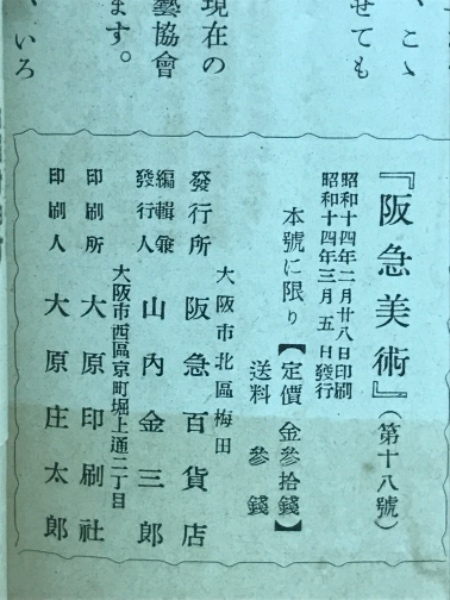 こゝ
せても
現在の
藝協會
ます。
いろ
『阪急美術』(第十八號)
昭和十四年二月廿八日印刷
昭和十四年三月五日發行
本號に限り【定價金參拾錢】
送料 參錢
大阪市北區梅田
發行所 阪急百貨店
編輯兼
發行人 山內金三郎
大阪市西區京町堀上通二丁目
印刷所 大原印刷社
印刷人 大原庄太郎